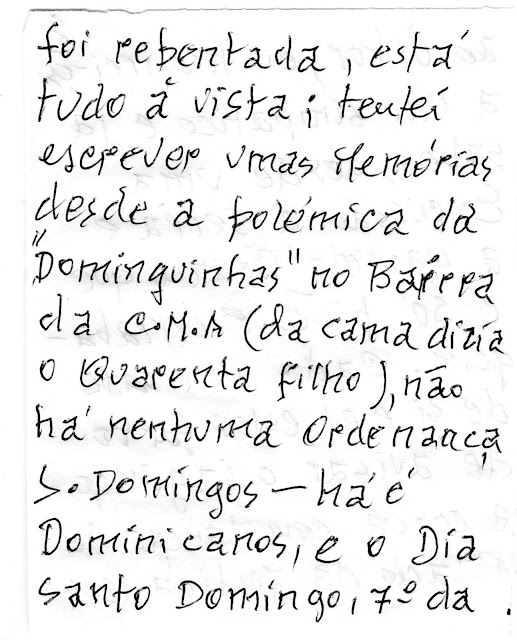 foi rebentada, está
tudo à vista; tentei
escrever umas Memórias
desde a polémica da
"Dominguinhas" no Bárrra
da C.M.A (da cama dizia
o Quarenta filho), não
há nenhuma Ordenança
S. Domingos — há é
Dominicanos, e o Dia
Santo Domingo, 7º da